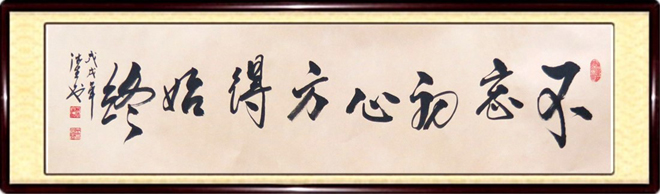 不忘初心方得始终
戊戌年